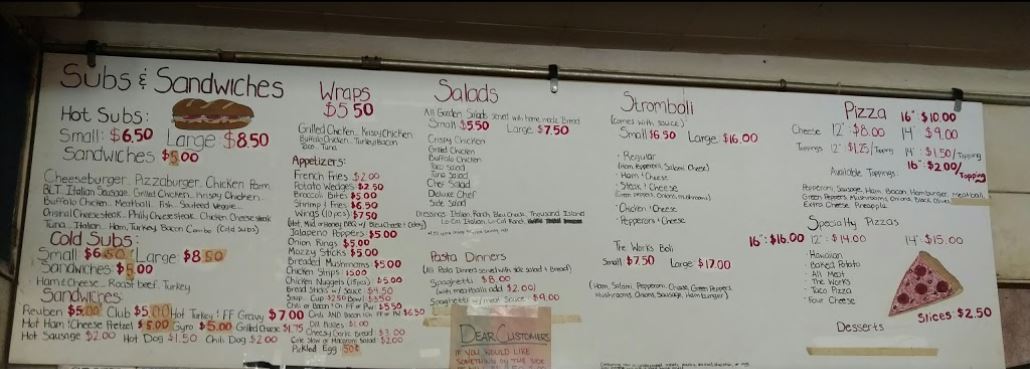 Subs & Sandwiches
Hot Subs:
Small: $6.50 Large $8.50
Sandwiches $5.00
Cheeseburger. Pizzaburger. Chicken Parm
BLT. Italian Sausage. Grilled Chicken. Krispy Chicken.
Buffalo Chicken. Meatball. Fish. Seafood Veggie
Original Cheesesteak. Philly Cheesesteak. Chicken Cheesesteak
Tuna. Italian. Ham, Turkey Bacon Combo (Cold subs)
Cold Subs:
Small $6.50 Large $8.50
Sandwiches $5.00
Ham & Cheese. Roast beef. Turkey
Sandwiches
Reuben $5.00 Club $5.00 Hot Turkey & FF Gravy $7.00
Hot Ham & Cheese Pretzel $5.00 Gyro $5.00 Grilled Cheese $1.75
Hot Sausage $2.00 Hot Dog $1.50 Chili Dog $2.00
Wraps
$5.50
Grilled Chicken. Krispy Chicken
Buffalo Chicken. Turkey Bacon
Taco. Tuna
Appetizers:
French Fries $2.00
Potato Wedges $2.50
Broccoli Bites $5.00
Shrimp & Fries $6.50
Wings (10 pcs) $7.50
(Hot, Mild or Honey BBQ w/ Bleu Cheese & Celery)
Jalapeno Poppers $5.00
Onion Rings $5.00
Mozzy Sticks $5.00
Breaded Mushrooms $5.00
Chicken Strips $5.00
Chicken Nuggets (15pcs) $5.00
Bread Sticks w/ Sauce $4.50
Soup. Cup $2.50 Bowl $3.50
Chili or Bacon On FF or PW $5.50
Chili AND Bacon on FF or PW $6.50
Dill Pickles $1.00
Cheesy Garlic Bread $3.00
Cole Slaw or Macaroni Salad $2.00
Pickled Egg 50¢
Salads
All Garden Salads served with homemade Bread
Small $5.50 Large $7.50
Crispy Chicken
Grilled Chicken
Buffalo Chicken
Taco Salad
Tuna Salad
Chef Salad
Deluxe Chef
Side Salad
Dressings: Italian, Ranch, Bleu Cheese, Thousand Island
Lo Cal Italian, Lo Cal Ranch
Pasta Dinners
(All Pasta Dinners served with side salad & bread)
Spaghetti $8.00
(with meatballs add $2.00)
Spaghetti w/ meat Sauce $9.00
DEAR CUSTOMERS
IF YOU WOULD LIKE
SOMETHING ON THE SIDE
Stromboli
(comes with sauce)
Small $6.50 Large $16.00
· Regular
(Ham, Pepperoni, Salami, Cheese)
· Ham & Cheese
· Steak & Cheese
(Green peppers, Onions, mushrooms)
· Chicken & Cheese
· Pepperoni & Cheese
The Works Boli
Small $7.50 Large $17.00
(Ham, Salami, Pepperoni, Cheese, Green Peppers
Mushrooms, Onions, Sausage, Hamburger)
Pizza 16" $10.00
Cheese 12" $8.00 14" $9.00
Toppings 12" $1.25/Topping 14" $1.50/Topping
16" $2.00/Topping
Available Toppings:
Pepperoni, Sausage, Ham, Bacon, Hamburger, Meatball,
Green Peppers, Mushrooms, Onions, Black Olives
Extra Cheese, Pineapple
Specialty Pizzas
16": $16.00 12": $14.00 14": $15.00
· Hawaiian
· Baked Potato
· All Meat
· The Works
· Taco Pizza
· Four Cheese
Slices: $2.50
Desserts